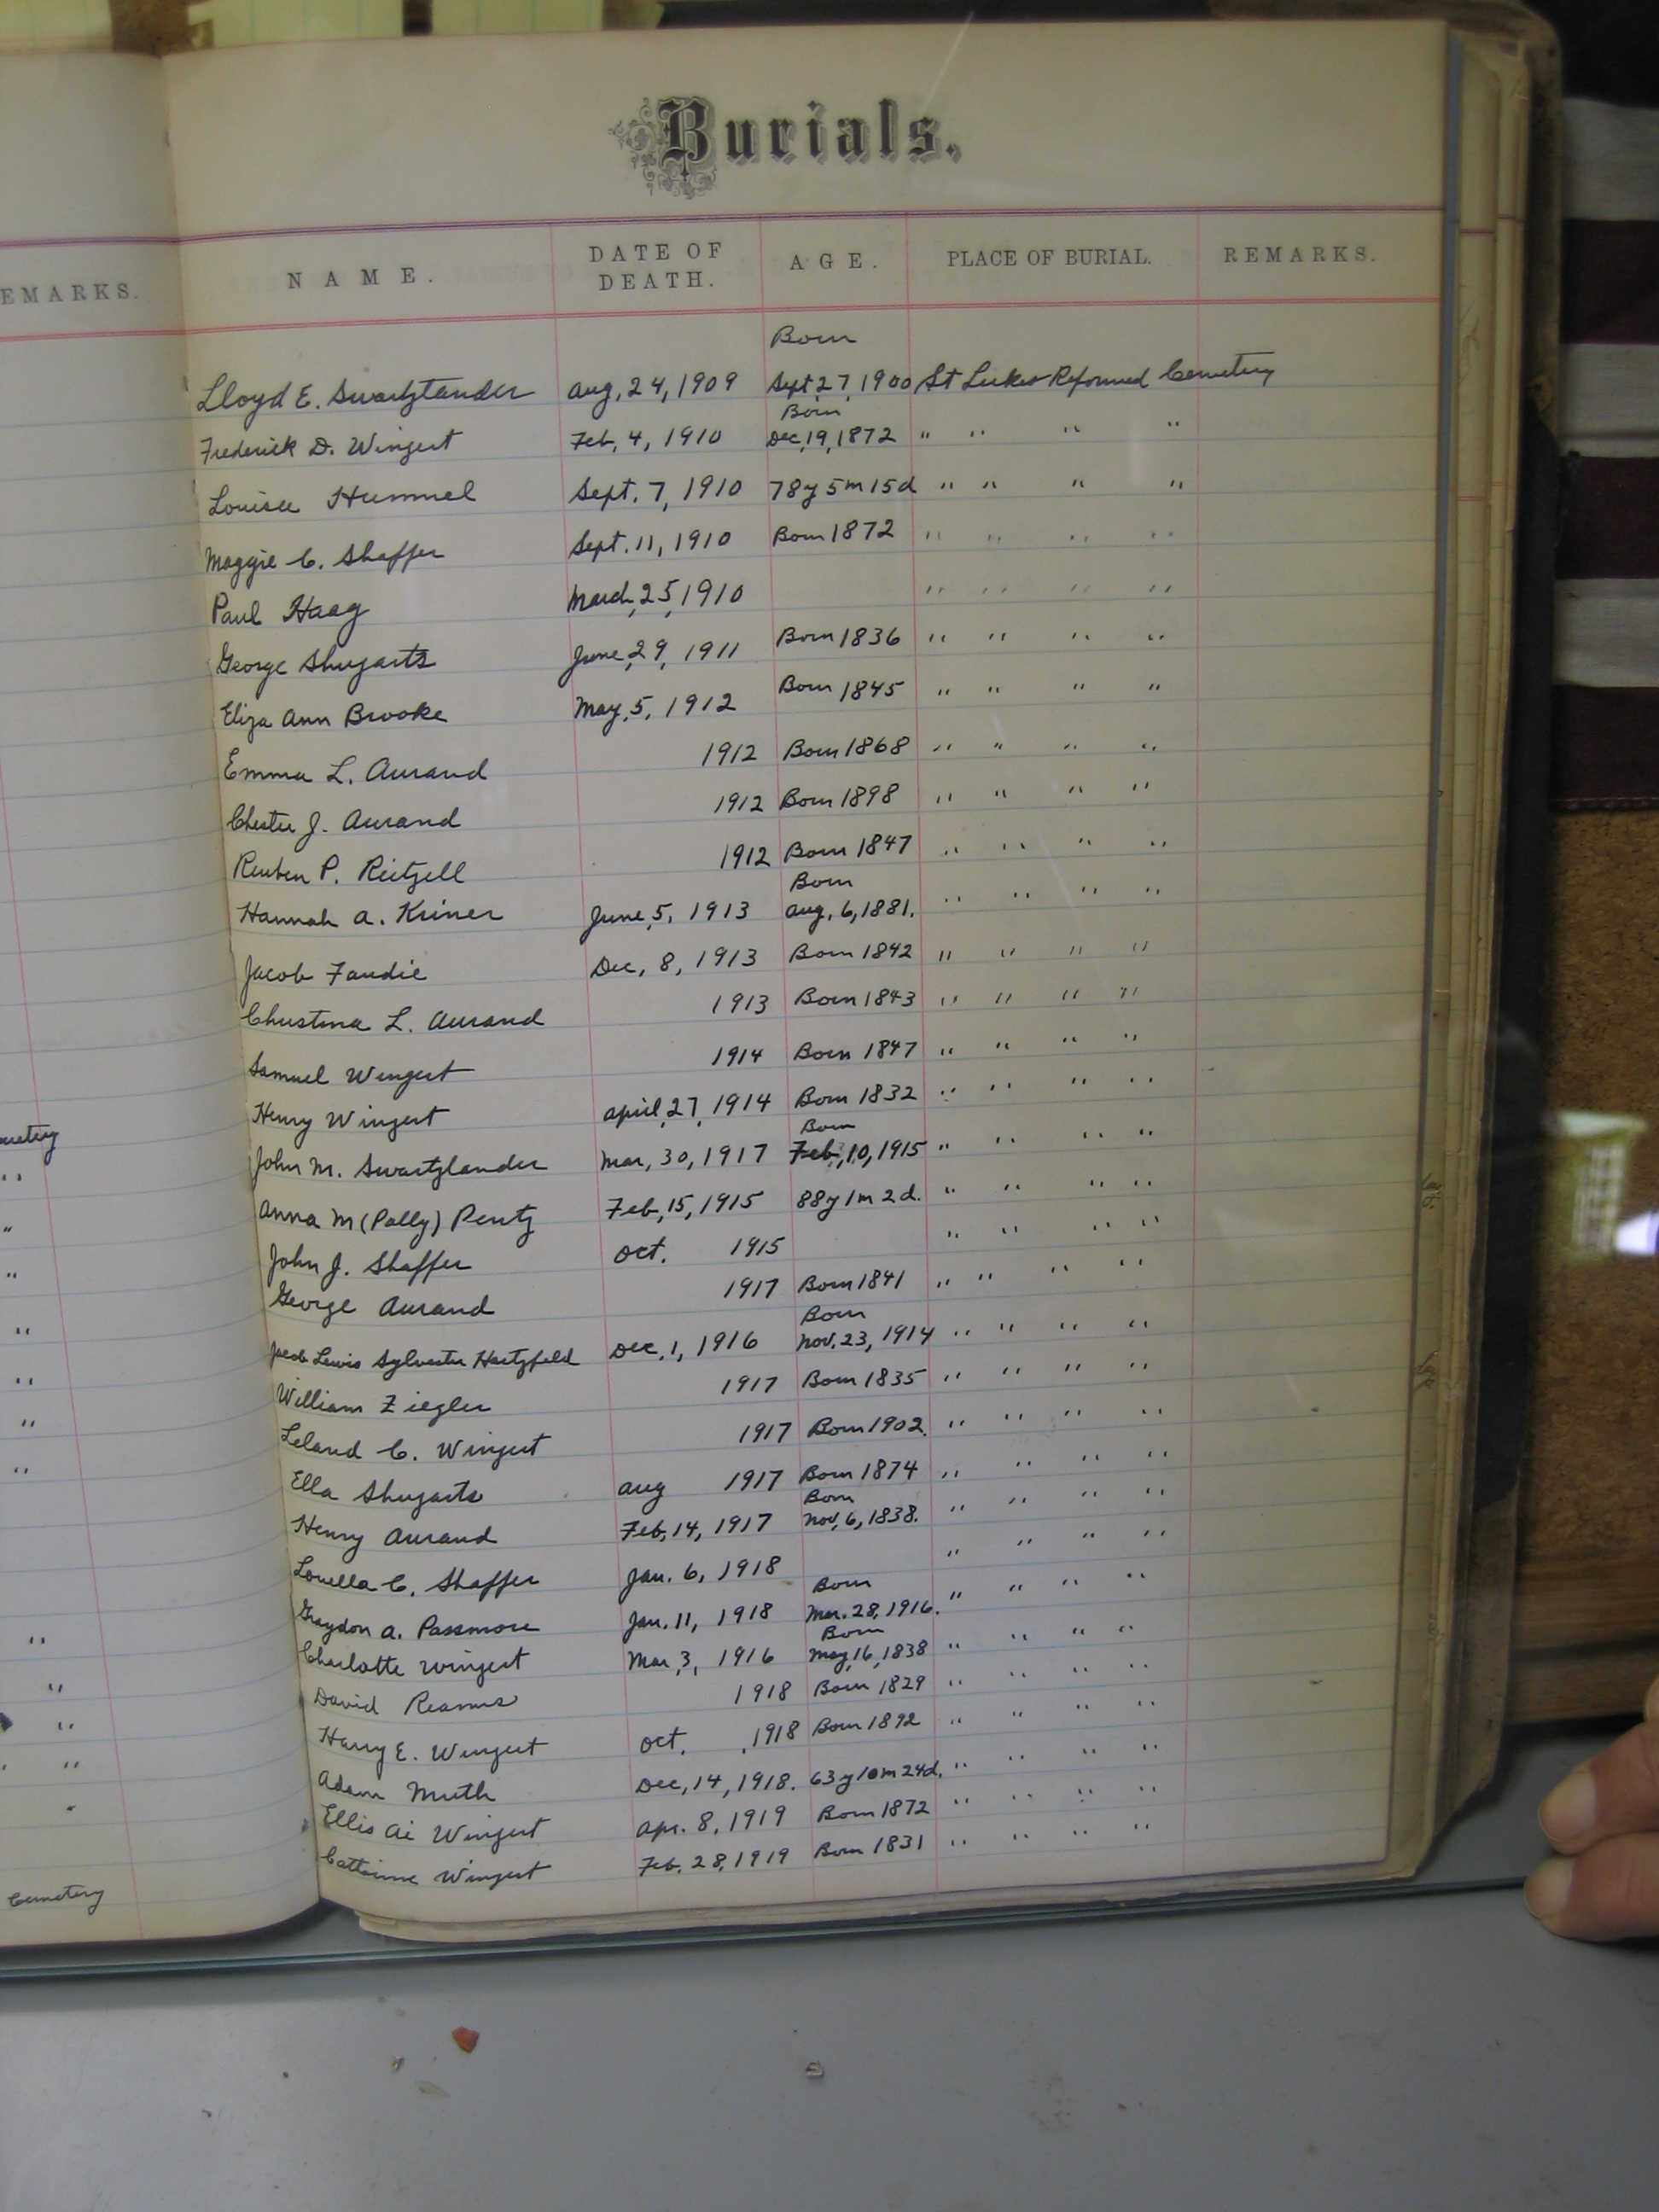 Burials.
EMARKS.
NAME. DATE OF DEATH. AGE. PLACE OF BURIAL. REMARKS.
Born
Lloyd E. Swartzlander Aug, 24, 1909 Sept, 27, 1900 St Lukes Reformed Cemetery
Born
Frederick D. Wingert Feb, 4, 1910 Dec, 19, 1872 " " " "
Louisa Hummel Sept. 7, 1910 78y 5m 15d " " " "
Maggie C. Shaffer Sept. 11, 1910 Born 1872 " " " "
Paul Haag March, 25, 1910 " " " "
George Shugarts June, 29, 1911 Born 1836 " " " "
Eliza Ann Brooke May, 5, 1912 Born 1845 " " " "
Emma L. Aurand 1912 Born 1868 " " " "
Chester J. Aurand 1912 Born 1898 " " " "
Reuben P. Reitzell 1912 Born 1847 " " " "
Born
Hannah A. Kriner June, 5, 1913 Aug, 6, 1881. " " " "
Jacob Faudie Dec, 8, 1913 Born 1842 " " " "
Christina L. Aurand 1913 Born 1843 " " " "
Samuel Wingert 1914 Born 1847 " " " "
Henry Wingert April, 27, 1914 Born 1832 " " " "
Born
John M. Swartzlander Mar, 30, 1917 Feb, 10, 1915 " " " "
Anna M (Polly) Pentz Feb, 15, 1915 88y 1m 2d. " " " "
John J. Shaffer Oct. 1915 " " " "
George Aurand 1917 Born 1841 " " " "
Born
Jacob Lewis Sylvester Hartzfeld Dec, 1, 1916 Nov. 23, 1914 " " " "
William Ziegler 1917 Born 1835 " " " "
Leland C. Wingert 1917 Born 1902. " " " "
Ella Shugarts Aug 1917 Born 1874 " " " "
Born
Henry Aurand Feb, 14, 1917 Nov, 6, 1838. " " " "
Louella C. Shaffer Jan. 6, 1918 " " " "
Born
Graydon A. Passmore Jan. 11, 1918 Mar. 28, 1916. " " " "
Born
Charlotte Wingert Mar, 3, 1916 May, 16, 1838 " " " "
David Reams 1918 Born 1829 " " " "
Harry E. Wingert Oct. 1918 Born 1892 " " " "
Adam Muth Dec, 14, 1918. 63y 10m 24d. " " " "
Ellis Ai Wingert Apr. 8, 1919 Born 1872 " " " "
Catherine Wingert Feb. 28, 1919 Born 1831 " " " "
Cemetery